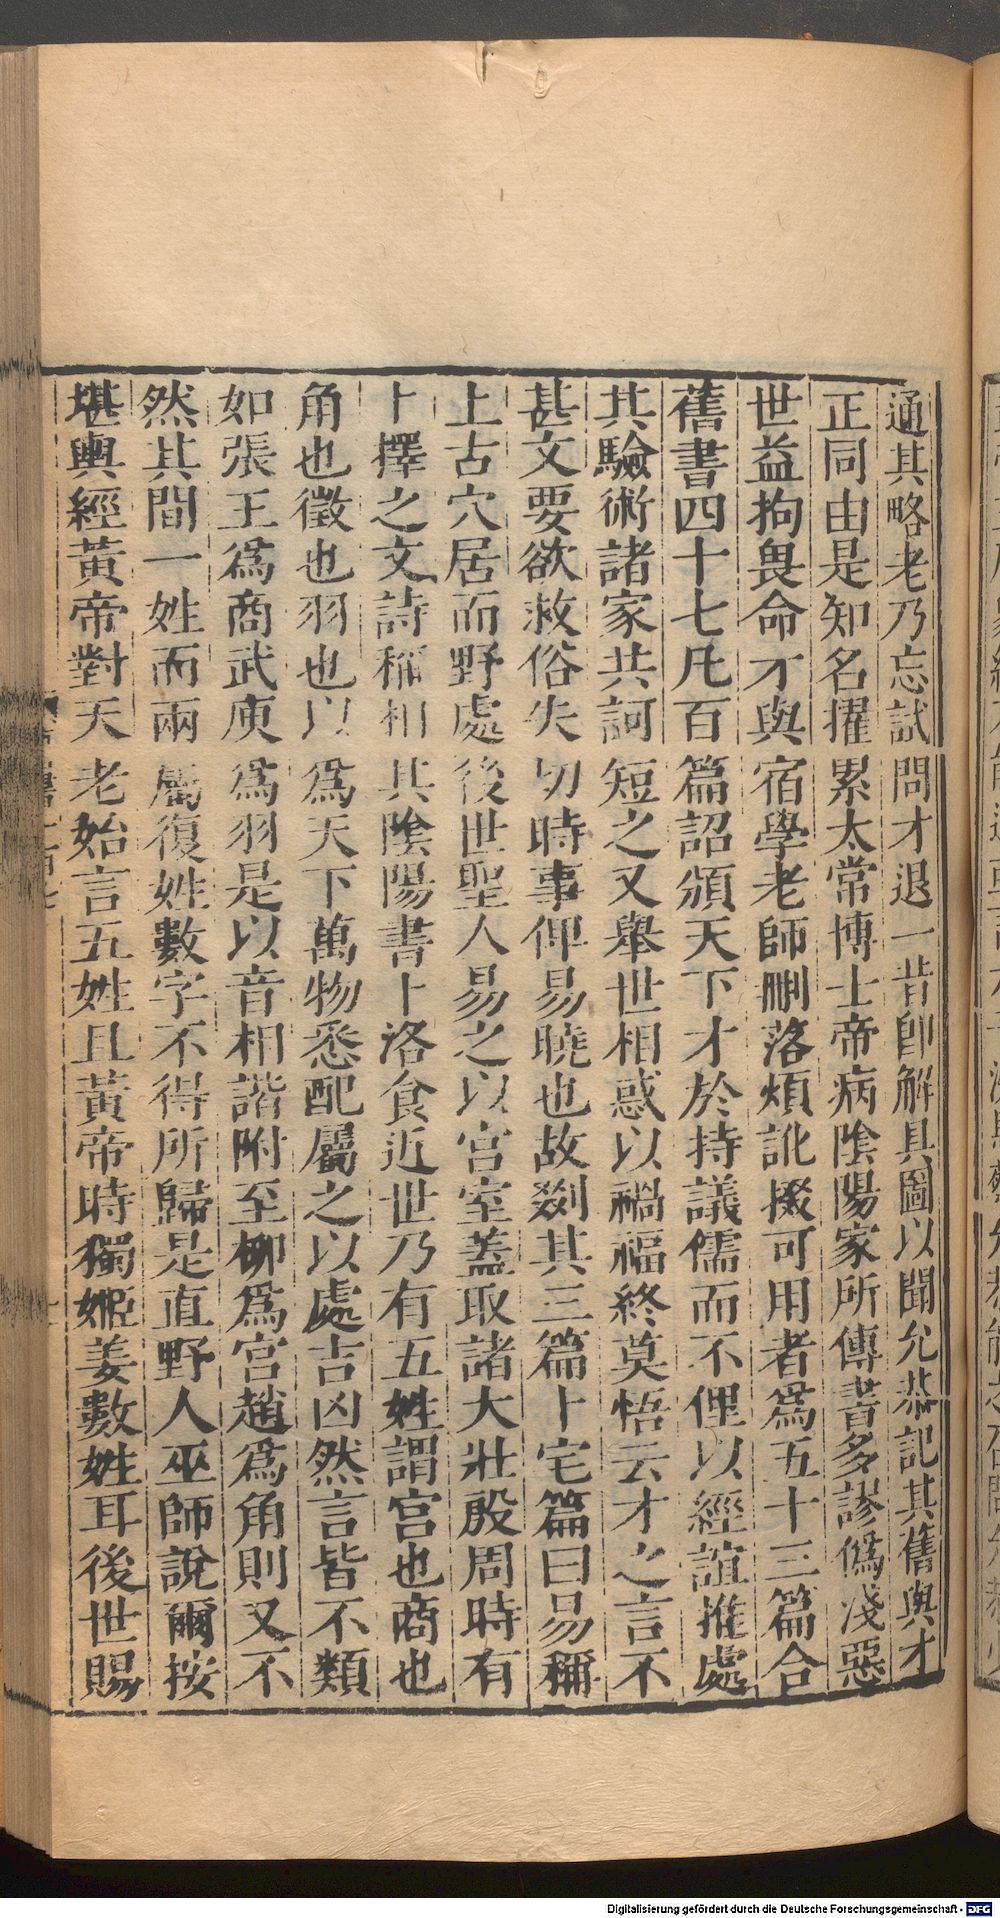 通其略老乃忘試問才退一昔即解具圖以聞允恭記其舊與才
正同由是知名擢累太常博士帝病陰陽家所傳書多謬僞淺惡
世益拘畏命才與宿學老師刪落煩訛掇可用者爲五十三篇合
舊書四十七凡百篇詔頒天下才於持議儒而不俚以經誼推處
其驗術諸家共訶短之又舉世相惑以禍福終莫悟云才之言不
甚文要欲救俗失切時事俾易曉也故剟其三篇卜宅篇曰易稱
上古穴居而野處後世聖人易之以宮室蓋取諸大壯殷周時有
卜擇之文詩稱相其陰陽書卜洛食近世乃有五姓謂宮也商也
角也徵也羽也以爲天下萬物悉配屬之以處吉凶然言皆不類
如張王爲商武庾爲羽是以音相諧附至柳爲宮趙爲角則又不
然其間一姓而兩屬復姓數字不得所歸是直野人巫師說爾按
堪輿經黃帝對天老始言五姓且黃帝時獨姬姜數姓耳後世賜
Digitalisierung gefördert durch die Deutsche Forschungsgemeinschaft - DFG